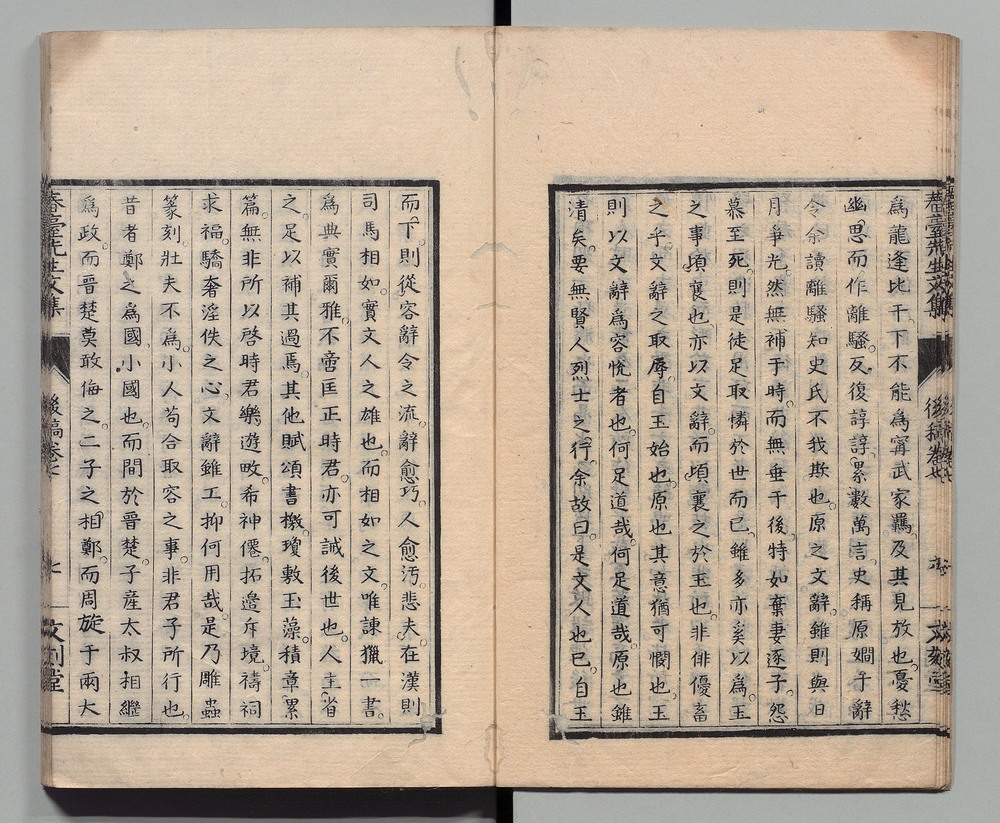 為龍逢比干下不能為甯武家羈及其見放也憂愁
幽思而作離騷反復諄諄累數萬言史稱原嫺于辭
令余讀離騷知史氏不我欺也原之文辭雖則與日
月爭光然無補于時而無垂于後特如棄妻逐子怨
慕至死則是徒足取憐於世而已雖多亦奚以為玉
之事頃襄也亦以文辭而頃襄之於玉也非俳優畜
之乎文辭之取辱自玉始也原也其意猶可憫也玉
則以文辭為容悅者也何足道哉何足道哉原也雖
清矣要無賢人烈士之行余故曰是文人也已自玉
春臺先生文集
後稿卷七
文刻堂
而下則從容辭令之流辭愈巧人愈污悲夫在漢則
司馬相如實文人之雄也而相如之文唯諫獵一書
為典實爾雅不啻匡正時君亦可誡後世也人主省
之足以補其過焉其他賦頌書檄瓊敷玉藻積章累
篇無非所以啓時君樂遊畋希神僊拓邊斥境禱祠
求福驕奢淫佚之心文辭雖工抑何用哉是乃雕蟲
篆刻壯夫不為小人苟合取容之事非君子所行也
昔者鄭之為國小國也而間於晉楚子産太叔相繼
為政而晉楚莫敢侮之二子之相鄭而周旋于兩大
春臺先生文集
後稿卷七
七
文刻堂